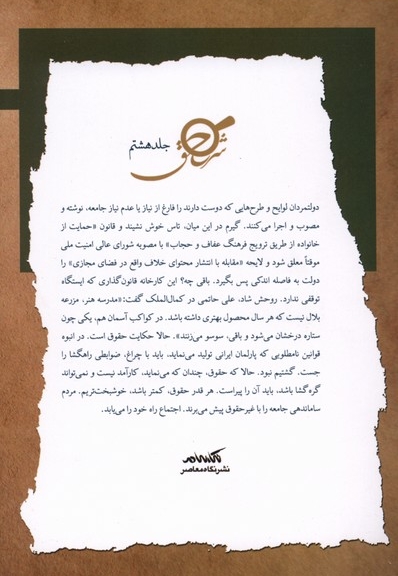 شرق حق
جلد هشتم
دولتمردان لوایح و طرح‌هایی که دوست دارند را فارغ از نیاز یا عدم نیاز جامعه، نوشته و
مصوب و اجرا می‌کنند. گیرم در این میان، تاس خوش نشیند و قانون «حمایت از
خانواده از طریق ترویج فرهنگ عفاف و حجاب» با مصوبه شورای عالی امنیت ملی
موقتاً معلق شود و لایحه «مقابله با انتشار محتوای خلاف واقع در فضای مجازی» را
دولت به فاصله اندکی پس بگیرد. باقی چه؟ این کارخانه قانون‌گذاری که ایستگاه
توقفی ندارد. روحش شاد، علی حاتمی در کمال‌الملک گفت: «مدرسه هنر، مزرعه
بلال نیست که هر سال محصول بهتری داشته باشد. در کواکب آسمان هم، یکی چون
ستاره درخشان می‌شود و باقی، سوسو می‌زنند». حالا حکایت حقوق است. در انبوه
قوانین نامطلوبی که پارلمان ایرانی تولید می‌نماید، باید با چراغ، ضوابطی راهگشا را
جست. گشتیم نبود. حالا که حقوق، چندان که می‌نماید، کارآمد نیست و نمی‌تواند
گره‌گشا باشد، باید آن را پیراست. هر قدر حقوق، کمتر باشد، خوشبخت‌تریم. مردم
ساماندهی جامعه را با غیرحقوق پیش می‌برند. اجتماع راه خود را می‌یابد.
نشر نگاه معاصر